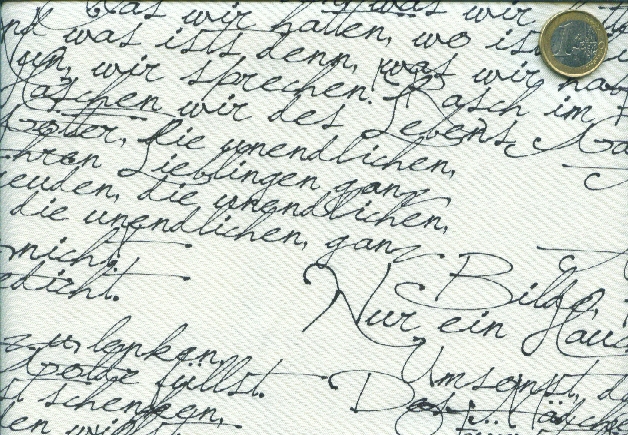 was wir hatten, wo ist
was ists denn, was wir
Nun, wir sprechen. Rasch im
Haschen wir des Lebens
Götter, die unendlichen,
ihren Lieblingen ganz
euden, die unendlichen,
die unendlichen, ganz
nicht
edicht.
Bilde,
Nur ein Hauch
zu lenken,
füllst.
Umsonst, d
schenken,
Das Mädche
1